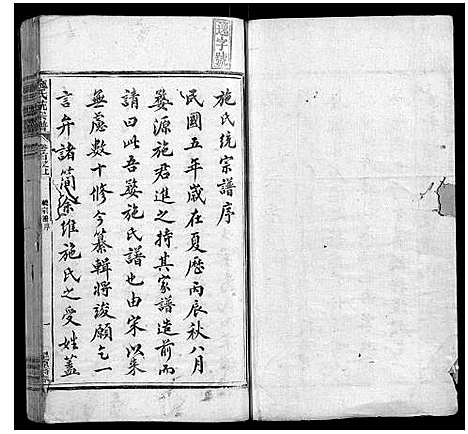 逸字號
施氏統宗譜序
民國五年歲在夏曆丙辰秋八月
婺源施君進之持其家譜造前而
請曰此吾婺施氏譜也由宋以來
無慮數十修今纂輯將竣願乞一
言弁諸簡余維施氏之受姓蓋
施氏統宗譜
卷首之上
序
一